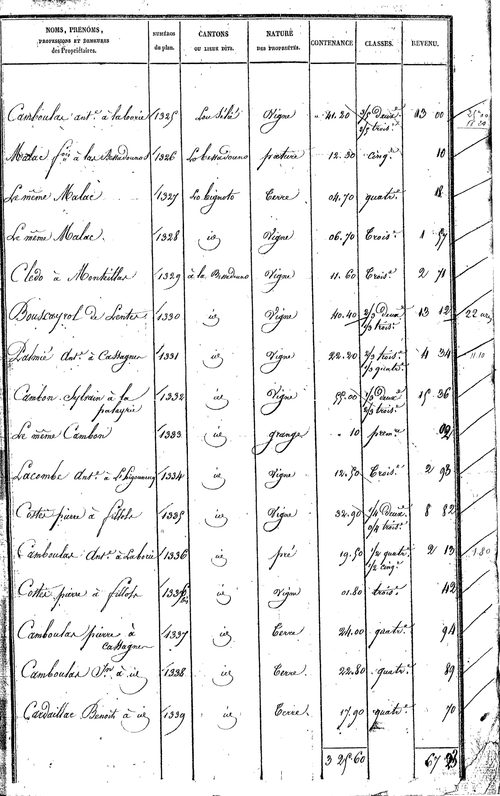 NOMS, PRÉNOMS, PROFESSIONS ET DEMEURES des Propriétaires. NUMÉROS du plan. CANTONS OU LIEUX DITS. NATURE DES PROPRIÉTÉS. CONTENANCE CLASSES. REVENU.
Camboulas ant.e à laborie 1325 Vigne 41.20 3/5 deux.e 2/5 trois.e 13 00
Malac à las Bessadounos 1326 La bessadouno pature 12.30 cinq.e 10
Le même Malac 1327 Terre 04.70 quatr.e 18
Le même Malac. 1328 id Vigne 06.70 Trois.e 1 57
Cledo à Monteillas 1329 à la Bessadouno Vigne 11.60 Trois.e 2 71
Bouscayrol de Lentes 1330 id Vigne 40.40 2/3 deux.e 1/3 trois.e 13 12 22
Palmié Ant.e à Cassagnes 1331 id Vigne 22.20 2/3 trois.e 1/3 quatr.e 4 34 11.10
Cambon Sylvain à la pateyrie 1332 id Vigne 55.00 1/3 deux.e 2/3 trois.e 15 36
Le même Cambon 1333 id grange " 10 prem.e 02
Lacombe Ant.e à 1334 id Vigne 12.50 Trois.e 2 93
Costes pierre à fillols 1335 id Vigne 32.90 1/4 Deux.e 3/4 trois.e 8 82
Camboulas Ant.e à Laborie 1336 id pré 19.50 1/2 quatr.e 1/2 cinq.e 2 13 1.80
Costes pierre à fillols 1336 id Vigne 01.80 trois.e 42
Camboulas pierre à cassagnes 1337 id Terre 24.00 quatr.e 94
Camboulas à id 1338 id Terre. 22.80 quatr.e 89
Cardaillac Benoit à id 1339 id Terre. 17.90 quatr.e 70
3 25.60 67 23